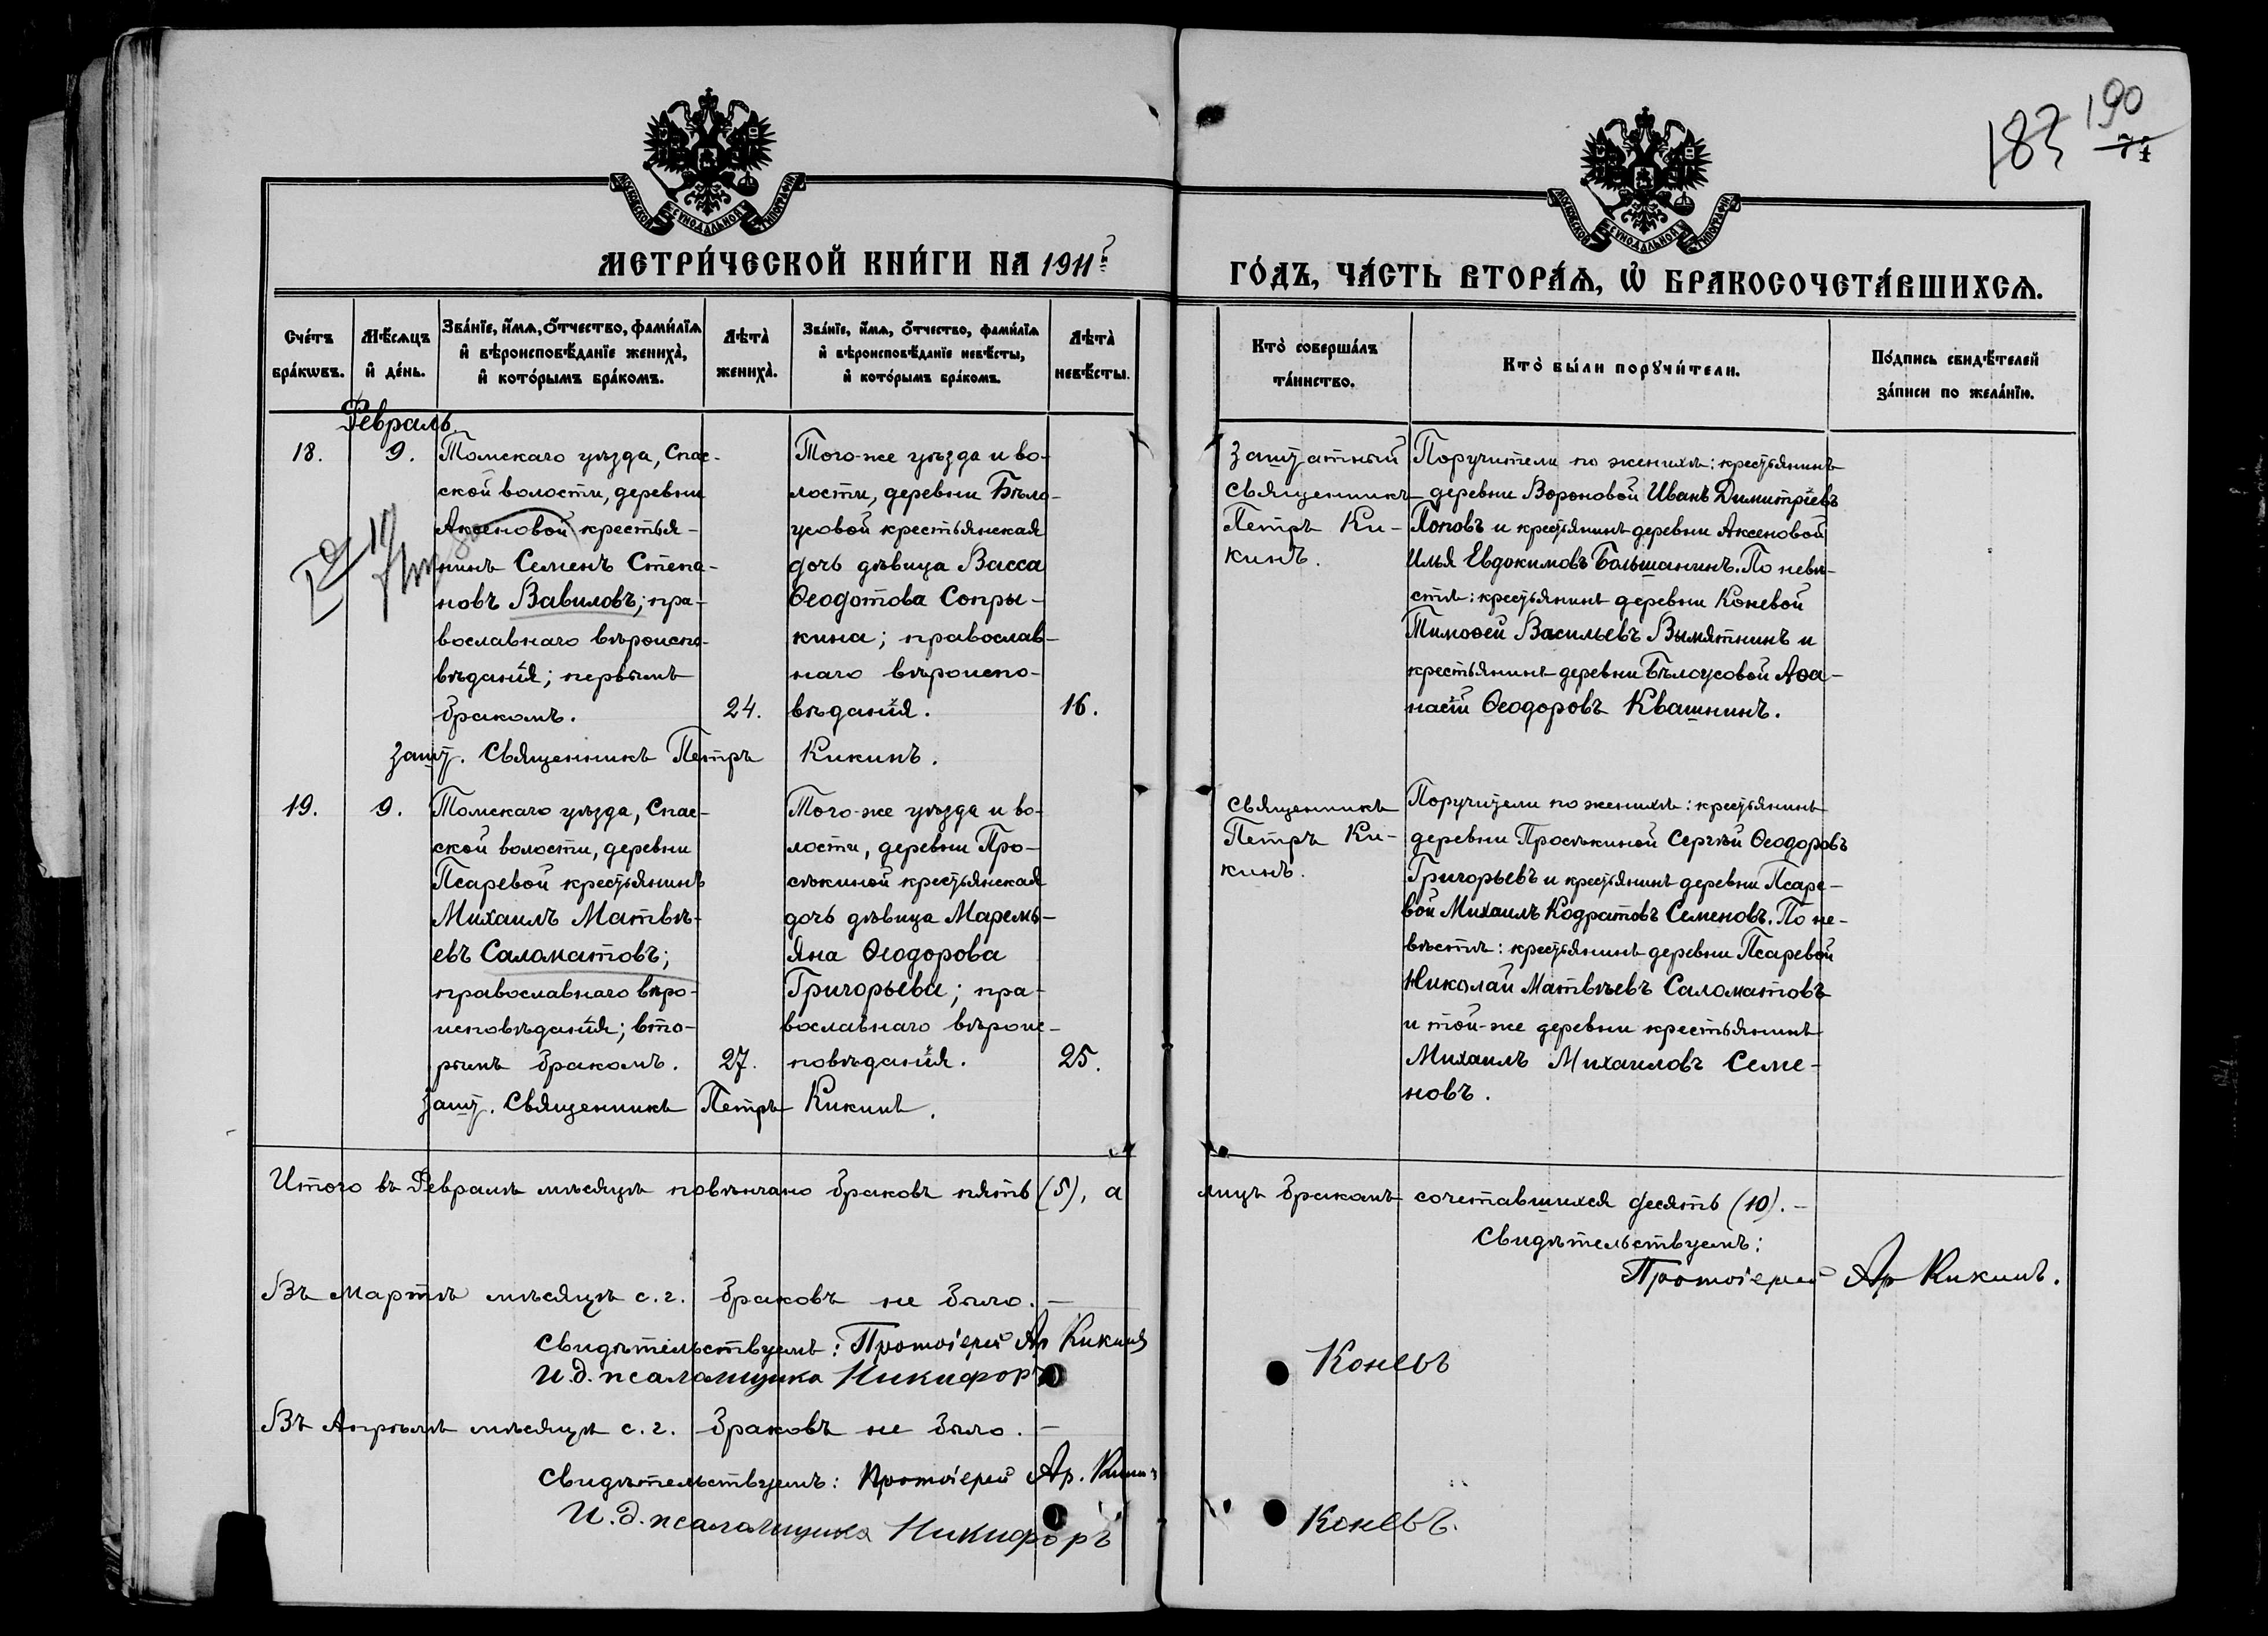 190
183 71
МОСКОВСКОЙ СΥНОДАЛЬНОЙ ТИПОГРАФІИ
МОСКОВСКОЙ СΥНОДАЛЬНОЙ ТИПОГРАФІИ
МЕТРИ́ЧЕСКОЙ КНИ́ГИ НА 1911 г.
ГО́ДЪ, ЧА́СТЬ ВТОРА́Ѧ, Ѽ БРАКОСОЧЕТА́ВШИХСѦ.
Сче́тъ бра́кѡвъ.
Мѣ́сѧцъ и҆ де́нь.
Зва́нїе, и҆́мѧ, ѻ҆́тчество, фами́лїѧ и҆ вѣроисповѣ́данїе жениха̀, и҆ кото́рымъ бра́комъ.
Лѣта̀ жениха̀.
Зва́нїе, и҆́мѧ, ѻ҆́тчество, фами́лїѧ и҆ вѣроисповѣ́данїе невѣ́сты, и҆ кото́рымъ бра́комъ.
Лѣта̀ невѣ́сты.
Кто̀ соверша́лъ та́инство.
Кто̀ бы́ли порꙋчи́тели.
По́дпись свидѣ́телей за́писи по жела́нїю.
Февраль
18.
9.
Томскаго уѣзда, Спас-
ской волости, деревни
Аксеновой крестья-
нинъ Семенъ Степа-
новъ Вавиловъ; пра-
вославнаго вѣроиспо-
вѣданія; первымъ
бракомъ.
24.
Того-же уѣзда и во-
лости, деревни Бѣло-
усовой крестьянская
дочь дѣвица Васса
Ѳеодотова Сопры-
кина; православ-
наго вѣроиспо-
вѣданія.
16.
Заштатный
священникъ
Петръ Ки-
кинъ.
Поручители по женихѣ: крестьянинъ
деревни Вороновой Иванъ Димитріевъ
Поповъ и крестьянинъ деревни Аксеновой
Илья Евдокимовъ Большанинъ. По невѣ-
стѣ: крестьянинъ деревни Коневой
Тимоѳей Васильевъ Вымятнинъ и
крестьянинъ деревни Бѣлоусовой Аѳа-
насій Ѳеодоровъ Квашнинъ.
Зашт. Священникъ Петръ Кикинъ.
19.
9.
Томскаго уѣзда, Спас-
ской волости, деревни
Псаревой крестьянинъ
Михаилъ Матвѣ-
евъ Саломатовъ;
православнаго вѣро-
исповѣданія; вто-
рымъ бракомъ.
27.
Того-же уѣзда и во-
лости, деревни Про-
сѣкиной крестьянская
дочь дѣвица Маремь-
яна Ѳеодорова
Григорьева; пра-
вославнаго вѣроис-
повѣданія.
25.
Священникъ
Петръ Ки-
кинъ.
Поручители по женихѣ: крестьянинъ
деревни Просѣкиной Сергѣй Ѳеодоровъ
Григорьевъ и крестьянинъ деревни Псаре-
вой Михаилъ Кодратовъ Семеновъ. По не-
вѣстѣ: крестьянинъ деревни Псаревой
Николай Матвѣевъ Саломатовъ
и той-же деревни крестьянинъ
Михаилъ Михаиловъ Семе-
новъ.
Зашт. Священникъ Петръ Кикинъ.
Итого въ Февралѣ мѣсяцѣ повѣнчано браковъ пять (5), а лицъ бракомъ сочетавшихся десять (10). —
Свидѣтельствуемъ:
Протоіерей Ар Кикинъ.
Въ Мартѣ мѣсяцѣ с. г. браковъ не было. —
Свидѣтельствуемъ: Протоіерей Ар Кикинъ
И. д. псаломщика Никифоръ Коневъ
Въ Апрѣлѣ мѣсяцѣ с. г. браковъ не было. —
Свидѣтельствуемъ: Протоіерей Ар. Кикинъ
И. д. псаломщика Никифоръ Коневъ.